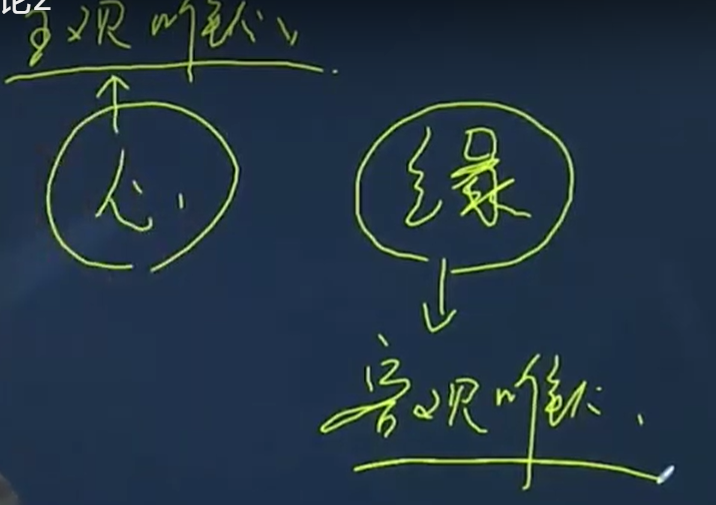 论2
主观唯心
心 缘
客观唯心